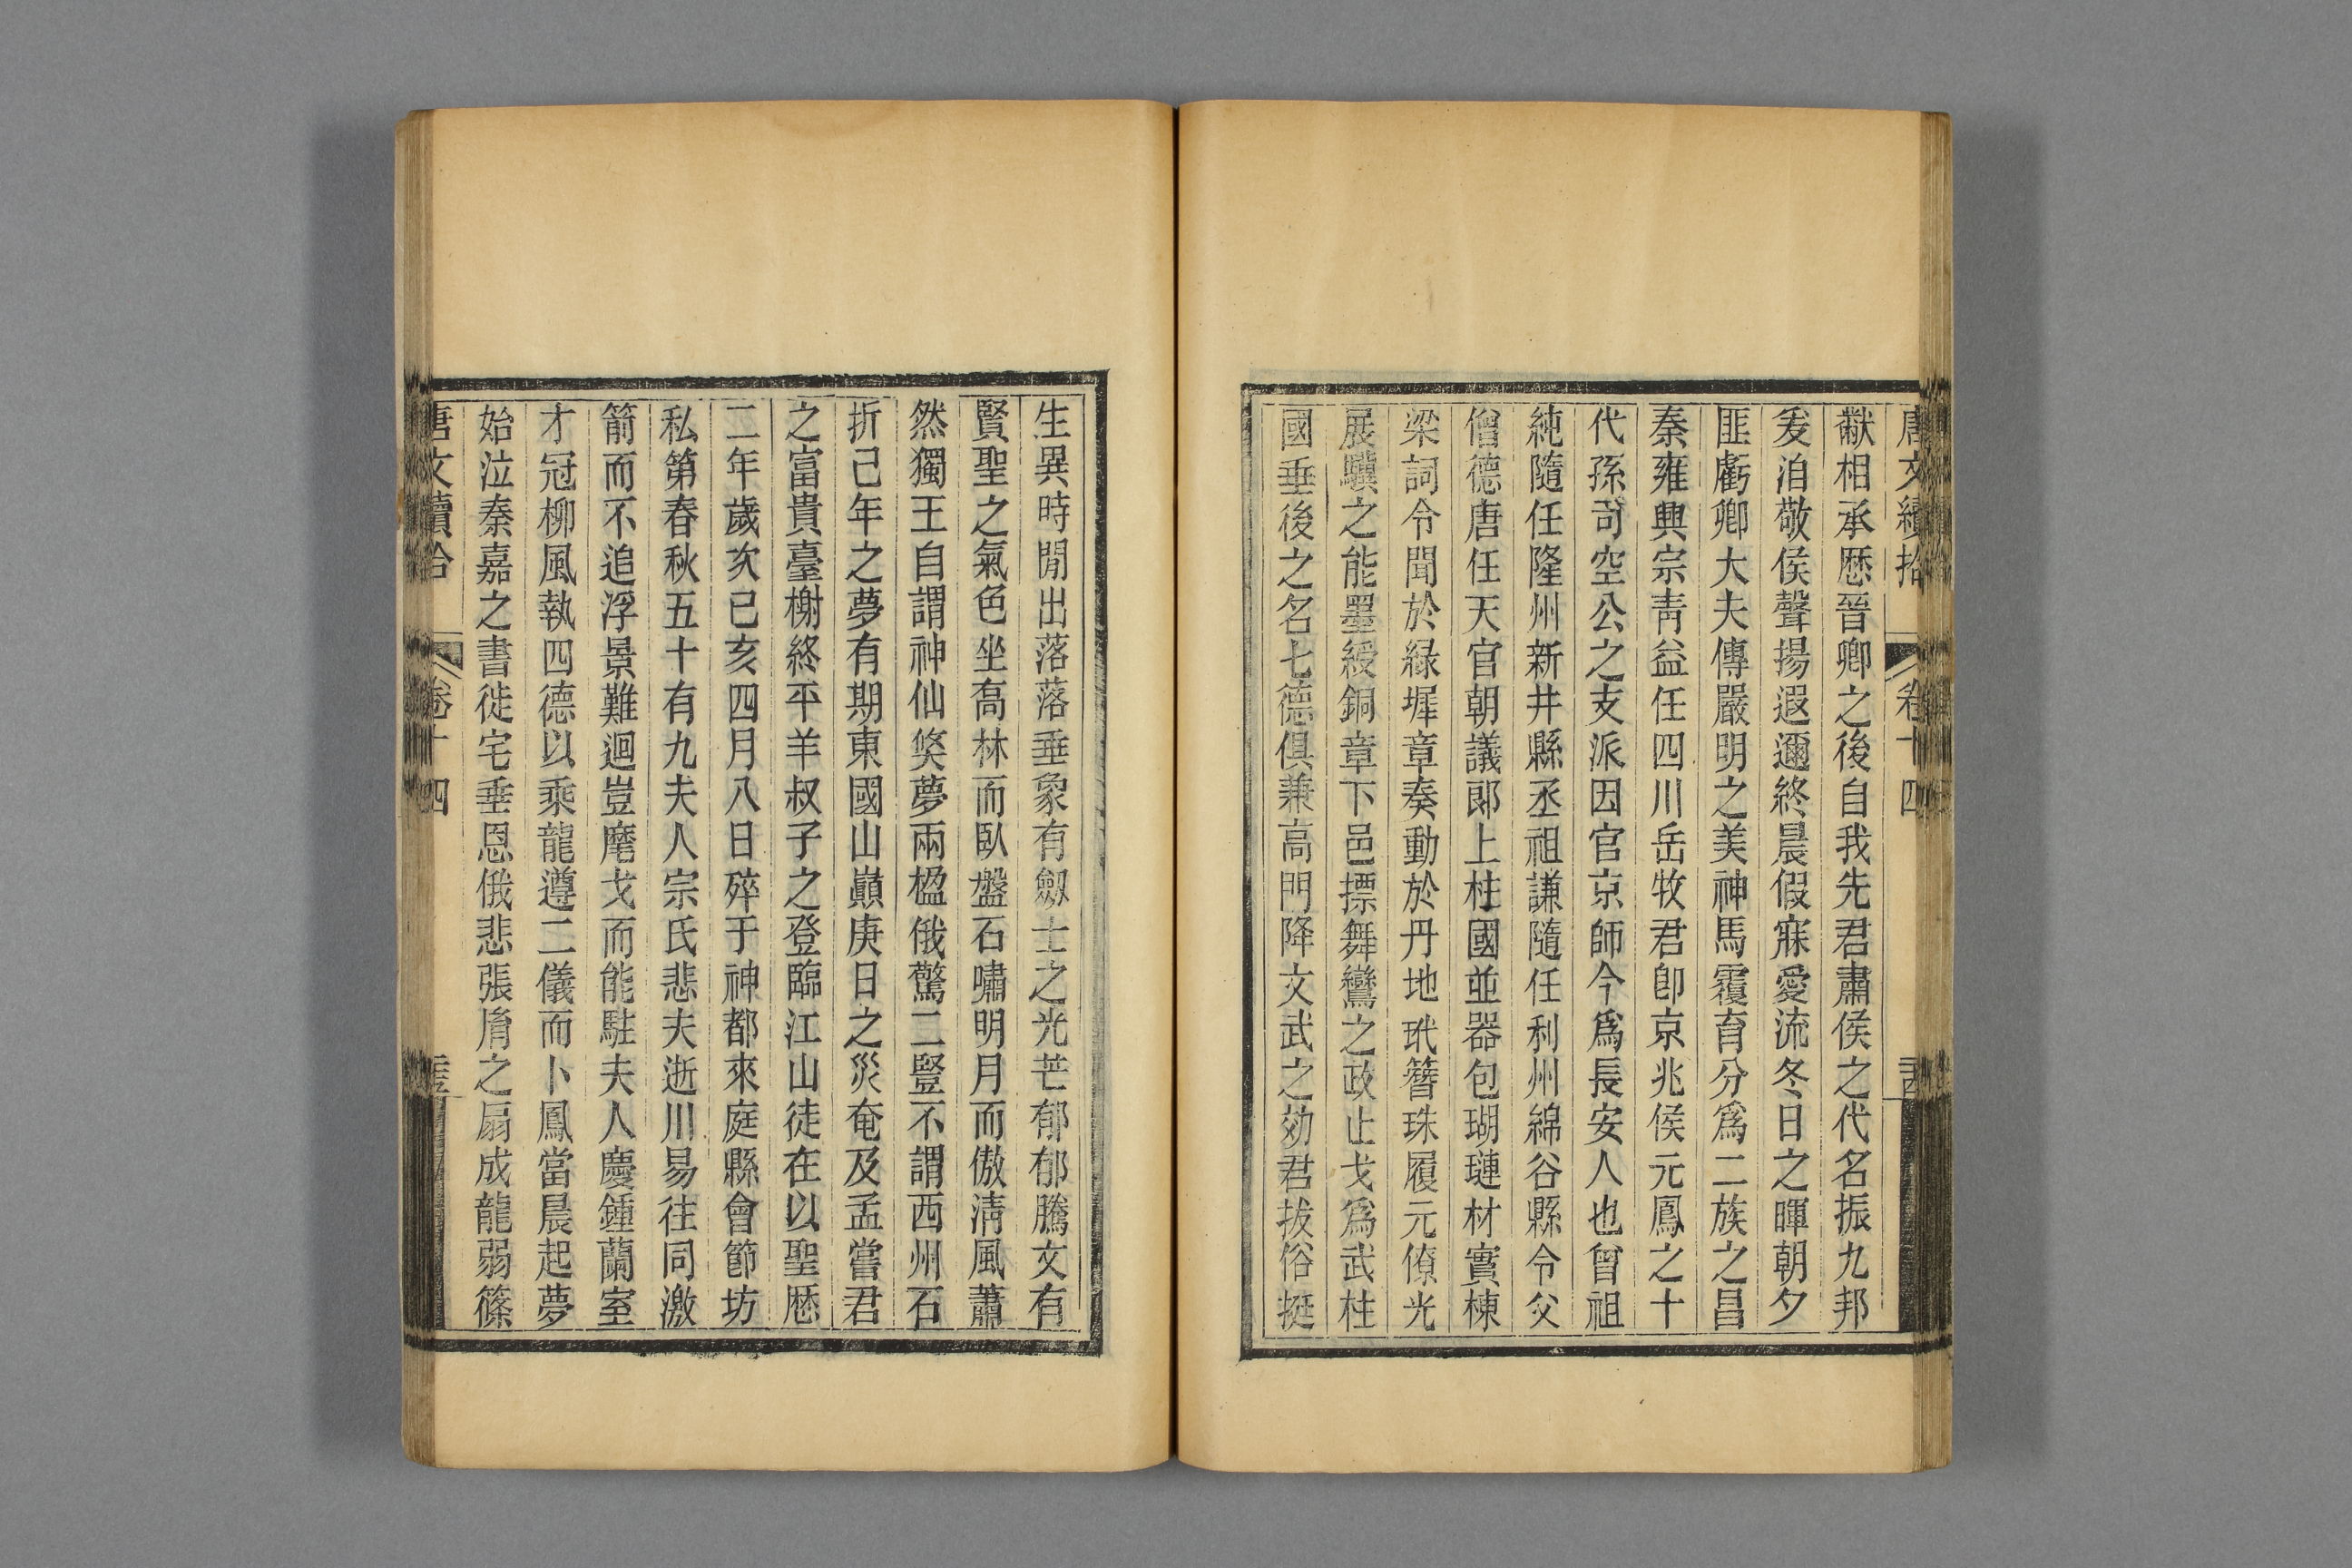 唐文續拾
卷十四
猷相承歷晉卿之後自我先君肅侯之代名振九邦
爰洎敬侯聲揚遐邇終晨假寐愛流冬日之暉朝夕
匪虧卿大夫傳嚴明之美神馬覆育分爲二族之昌
秦雍興宗靑益任四川岳牧君卽京兆侯元鳳之十
代孫司空公之支派因官京師今爲長安人也曾祖
純隨任隆州新井縣丞祖謙隨任利州綿谷縣令父
僧德唐任天官朝議郞上柱國並器包瑚璉材實棟
梁詞令聞於緑墀章奏動於丹地玳簪珠履元僚光
展驥之能墨綬銅章下邑摽舞鸞之政止戈爲武柱
國垂後之名七德俱兼高門降文武之効君拔俗挺
生異時閒出落落垂象有劔士之光芒郁郁騰文有
賢聖之氣色坐高林而臥盤石嘯明月而傲淸風蕭
然獨王自謂神仙奠夢兩楹俄驚二豎不謂西州石
折己年之夢有期東國山巓庚日之災奄及孟嘗君
之富貴臺榭終平羊叔子之登臨江山徒在以聖歷
二年歲次己亥四月八日殚于神都來庭縣會節坊
私第春秋五十有九夫人宗氏悲夫逝川易往同激
箭而不追浮景難迴豈麾戈而能駐夫人慶鍾蘭室
才冠柳風執四德以乘龍遵二儀而卜鳳當晨起夢
始泣秦嘉之書徙宅垂恩俄悲張㡽之扇成龍弱篠
唐文續拾
卷十四